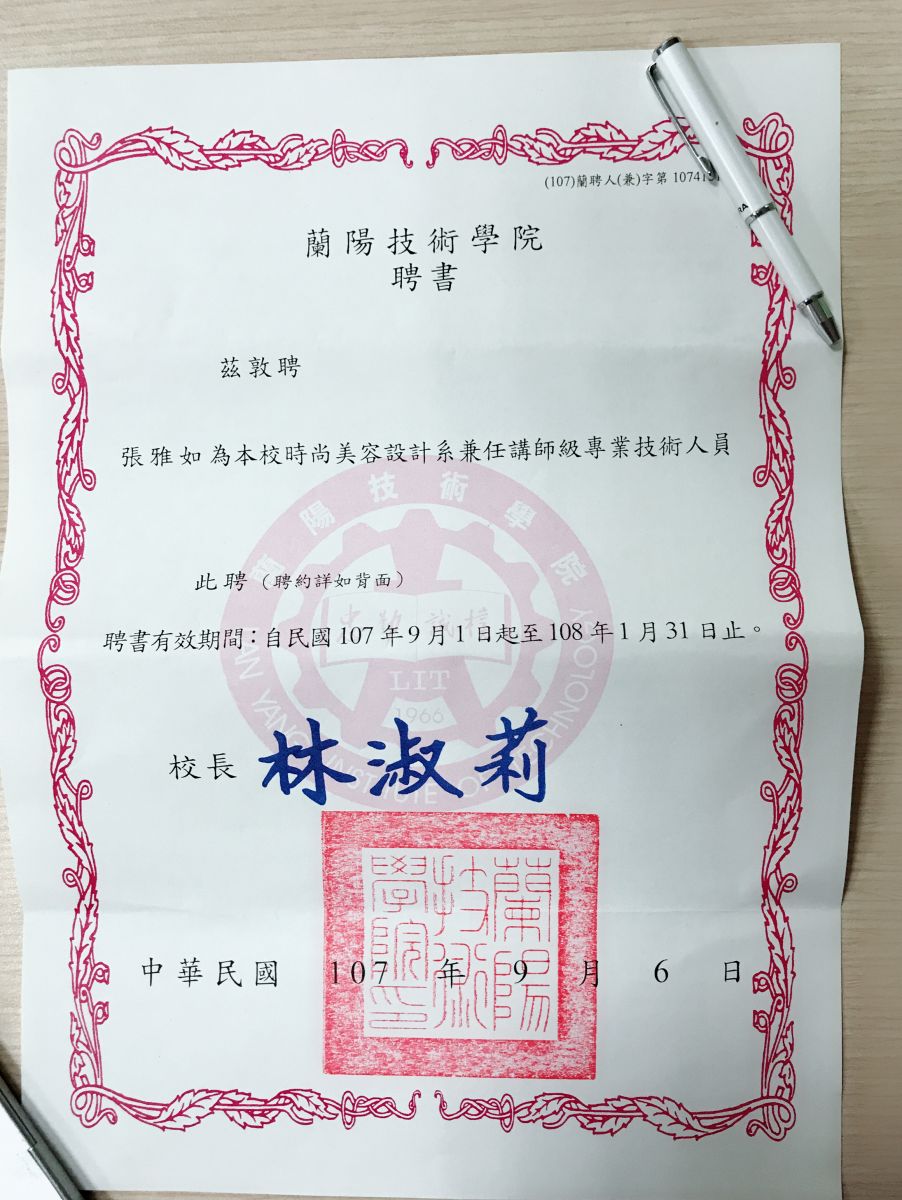 (107)蘭聘人(兼)字第 10741
蘭陽技術學院
聘書
茲敦聘
張雅如 為本校時尚美容設計系兼任講師級專業技術人員
蘭陽技術學院
此聘（聘約詳如背面）
聘書有效期間：自民國 107 年 9 月 1 日起至 108 年 1 月 31 日止。
LIT
1966
LAN YANG INSTITUTE OF TECHNOLOGY
校長 林淑莉
蘭陽技術學院印
中華民國 107 年 9 月 6 日